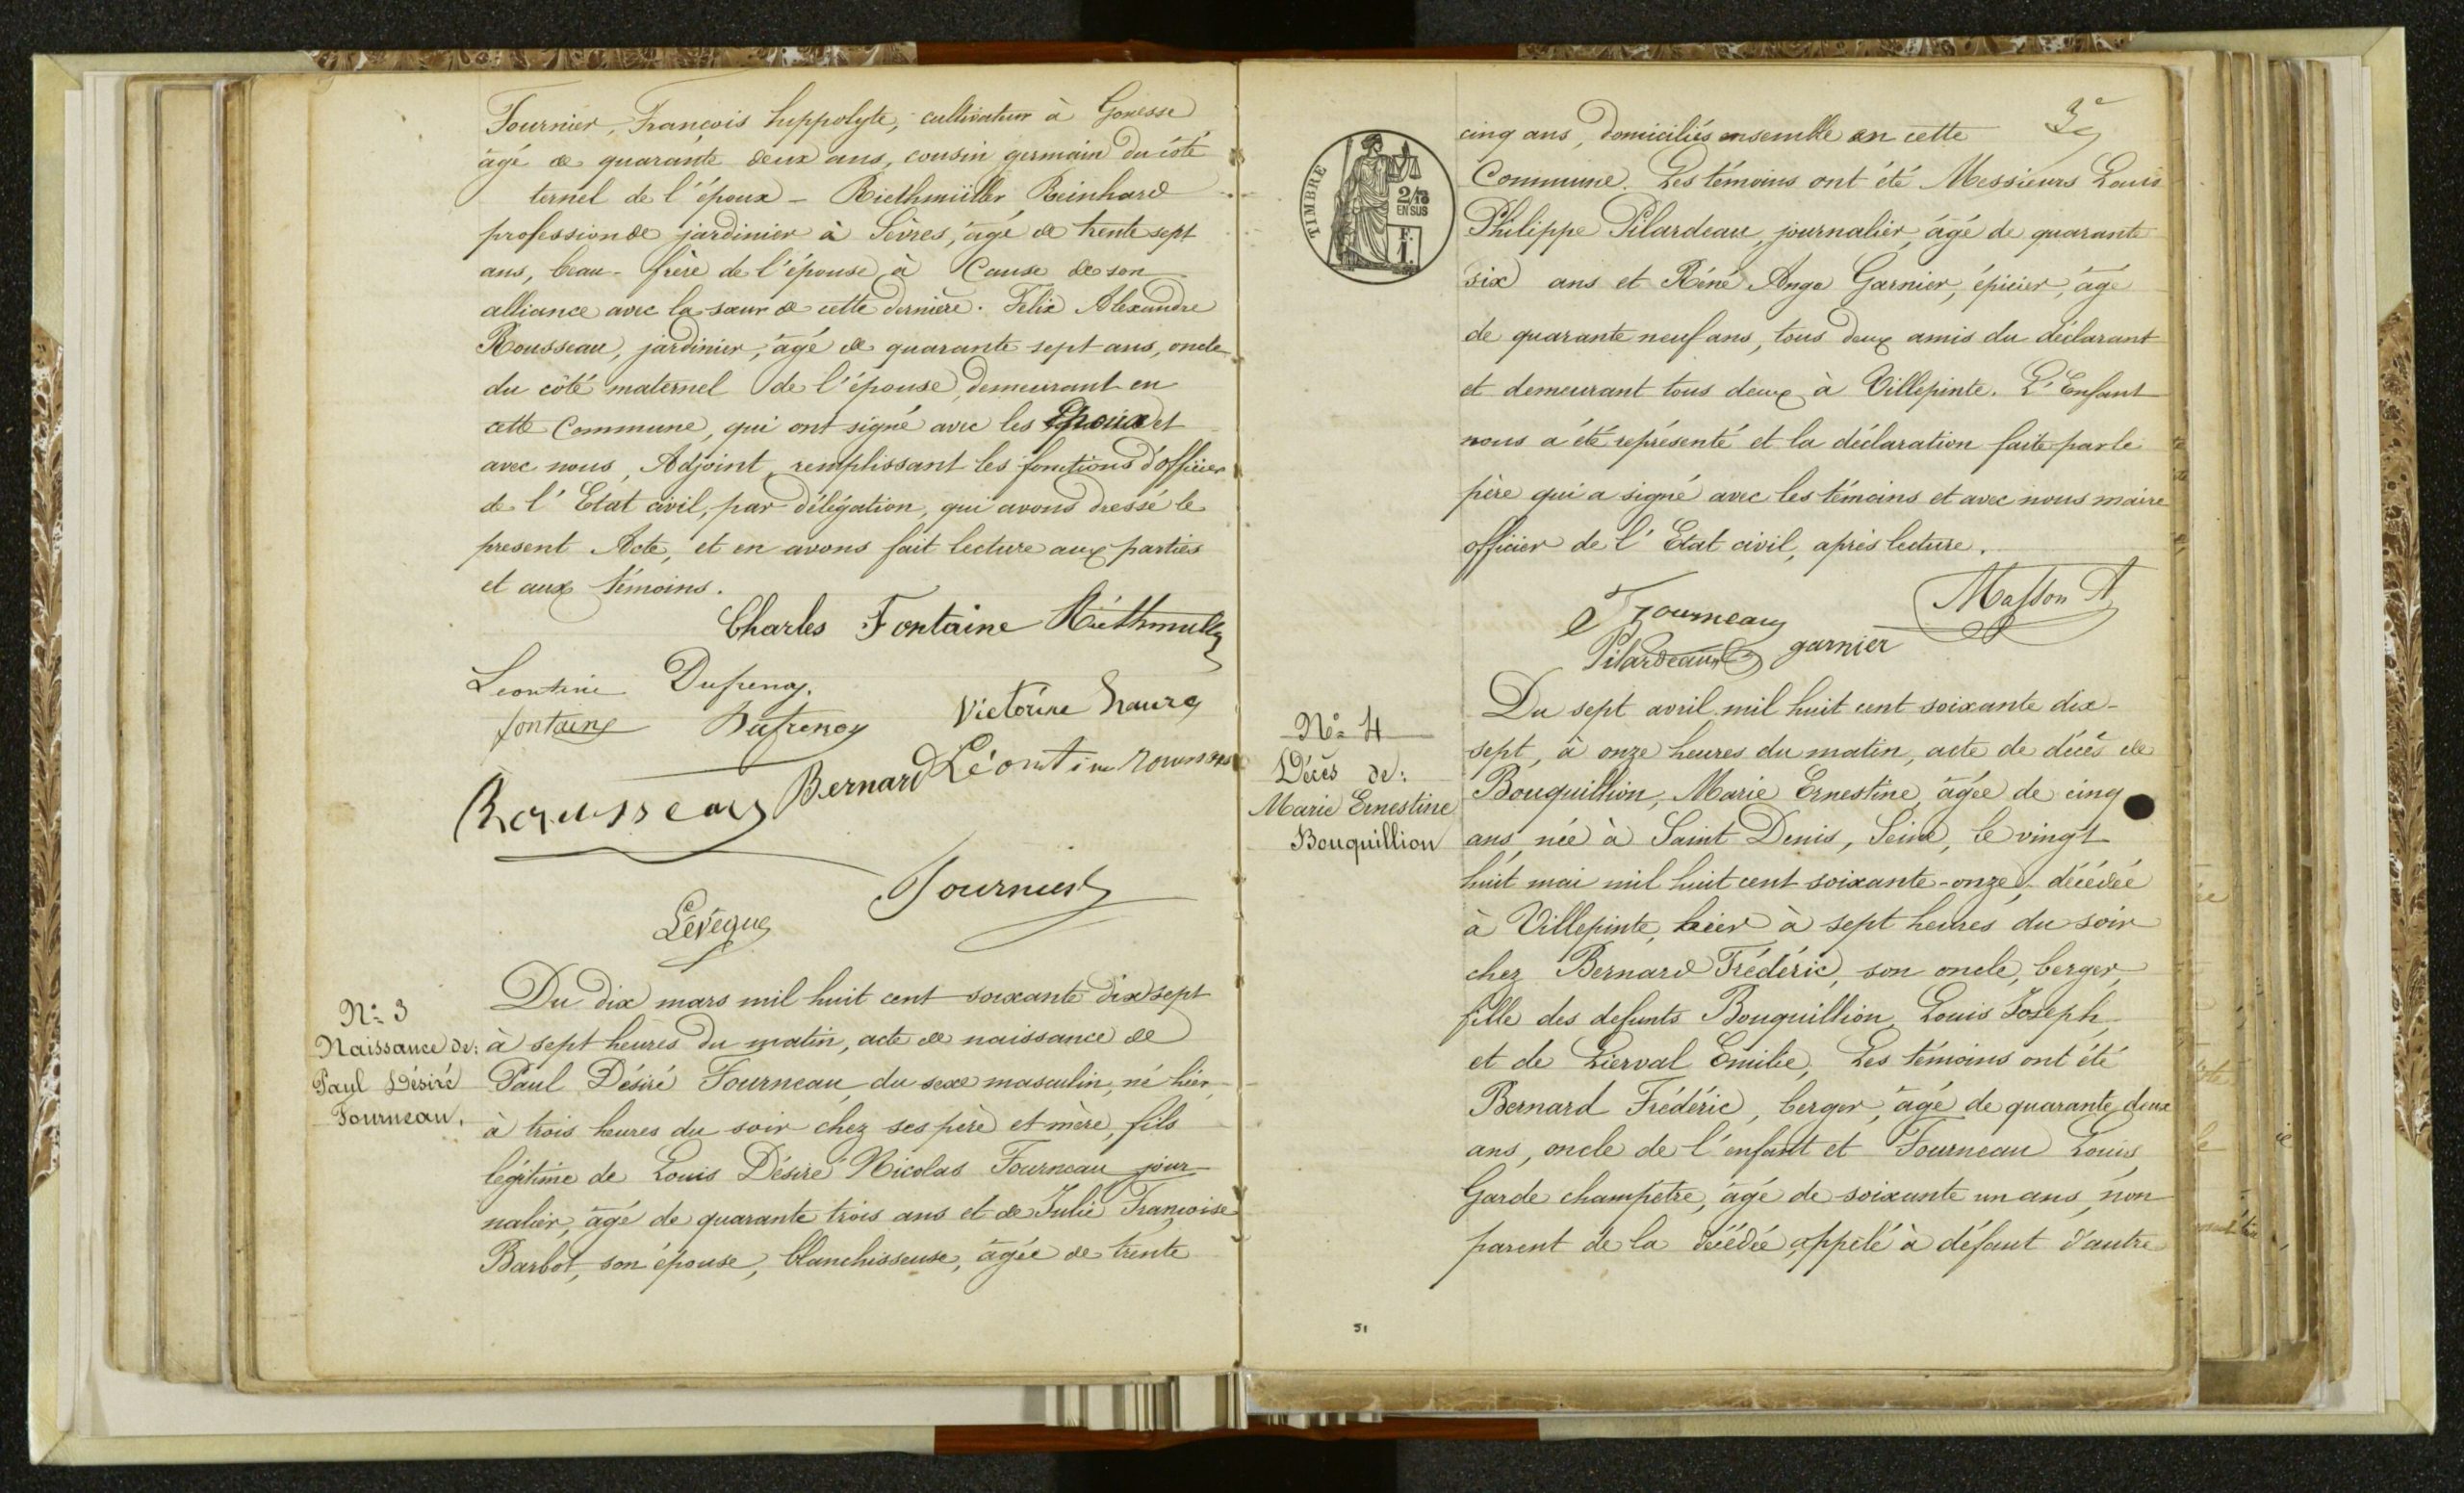 Fournier, François hippolyte, cultivateur à Gonesse
âgé de quarante deux ans, cousin germain du côté
ternel de l'époux - Riethmüller Reinhard
profession de jardinier à Sèvres, âgé de trente sept
ans, beau-frère de l'épouse à Cause de son
alliance avec la sœur de cette dernière. Felix Alexandre
Rousseau, jardinier, âgé de quarante sept ans, oncle
du côté maternel de l'épouse, demeurant en
cette Commune, qui ont signé avec les Epoux et
avec nous, Adjoint, remplissant les fonctions d'officier
de l'Etat civil, par délégation, qui avons dressé le
present Acte, et en avons fait lecture aux parties
et aux témoins.
Charles Fontaine Riethmuller
Leontine Dufrenoy
fontaine Dufrenoy Victorine
Rousseau Bernard Léontine
Fournier
Lévêque
N° 3
Naissance de:
Paul Désiré
Fourneau.
Du dix mars mil huit cent soixante dix sept
à sept heures du matin, acte de naissance de
Paul Désiré Fourneau, du sexe masculin, né hier,
à trois heures du soir chez ses père et mère, fils
légitime de Louis Désiré Nicolas Fourneau jour
nalier, âgé de quarante trois ans et de Julie Françoise
Barbot, son épouse, blanchisseuse, âgée de trente
3e
TIMBRE
2/10
EN SUS
F.
1.
cinq ans, domiciliés ensemble en cette
Commune. Les témoins ont été Messieurs Louis
Philippe Pilardeau, journalier, âgé de quarante
six ans et Réné Ange Garnier, épicier, âgé
de quarante neuf ans, tous deux amis du déclarant
et demeurant tous deux à Villepinte. L'Enfant
nous a été représenté et la déclaration faite par le
père qui a signé avec les témoins et avec nous maire
officier de l'Etat civil, après lecture.
Fourneau Masson A
Pilardeau garnier
N° 4
Décès de:
Marie Ernestine
Bouquillion
Du sept avril mil huit cent soixante dix-
sept, à onze heures du matin, acte de décès de
Bouquillion, Marie Ernestine, âgée de cinq
ans, née à Saint Denis, Seine, le vingt
huit mai mil huit cent soixante-onze, décédée
à Villepinte, hier à sept heures du soir
chez Bernard Frédéric, son oncle, berger,
fille des defunts Bouquillion, Louis Joseph
et de Lierval Emilie, Les témoins ont été
Bernard Frédéric, berger, âgé de quarante deux
ans, oncle de l'enfant et Fourneau Louis,
Garde champêtre, âgé de soixante un ans, non
parent de la décédée appelé à défaut d'autre
51